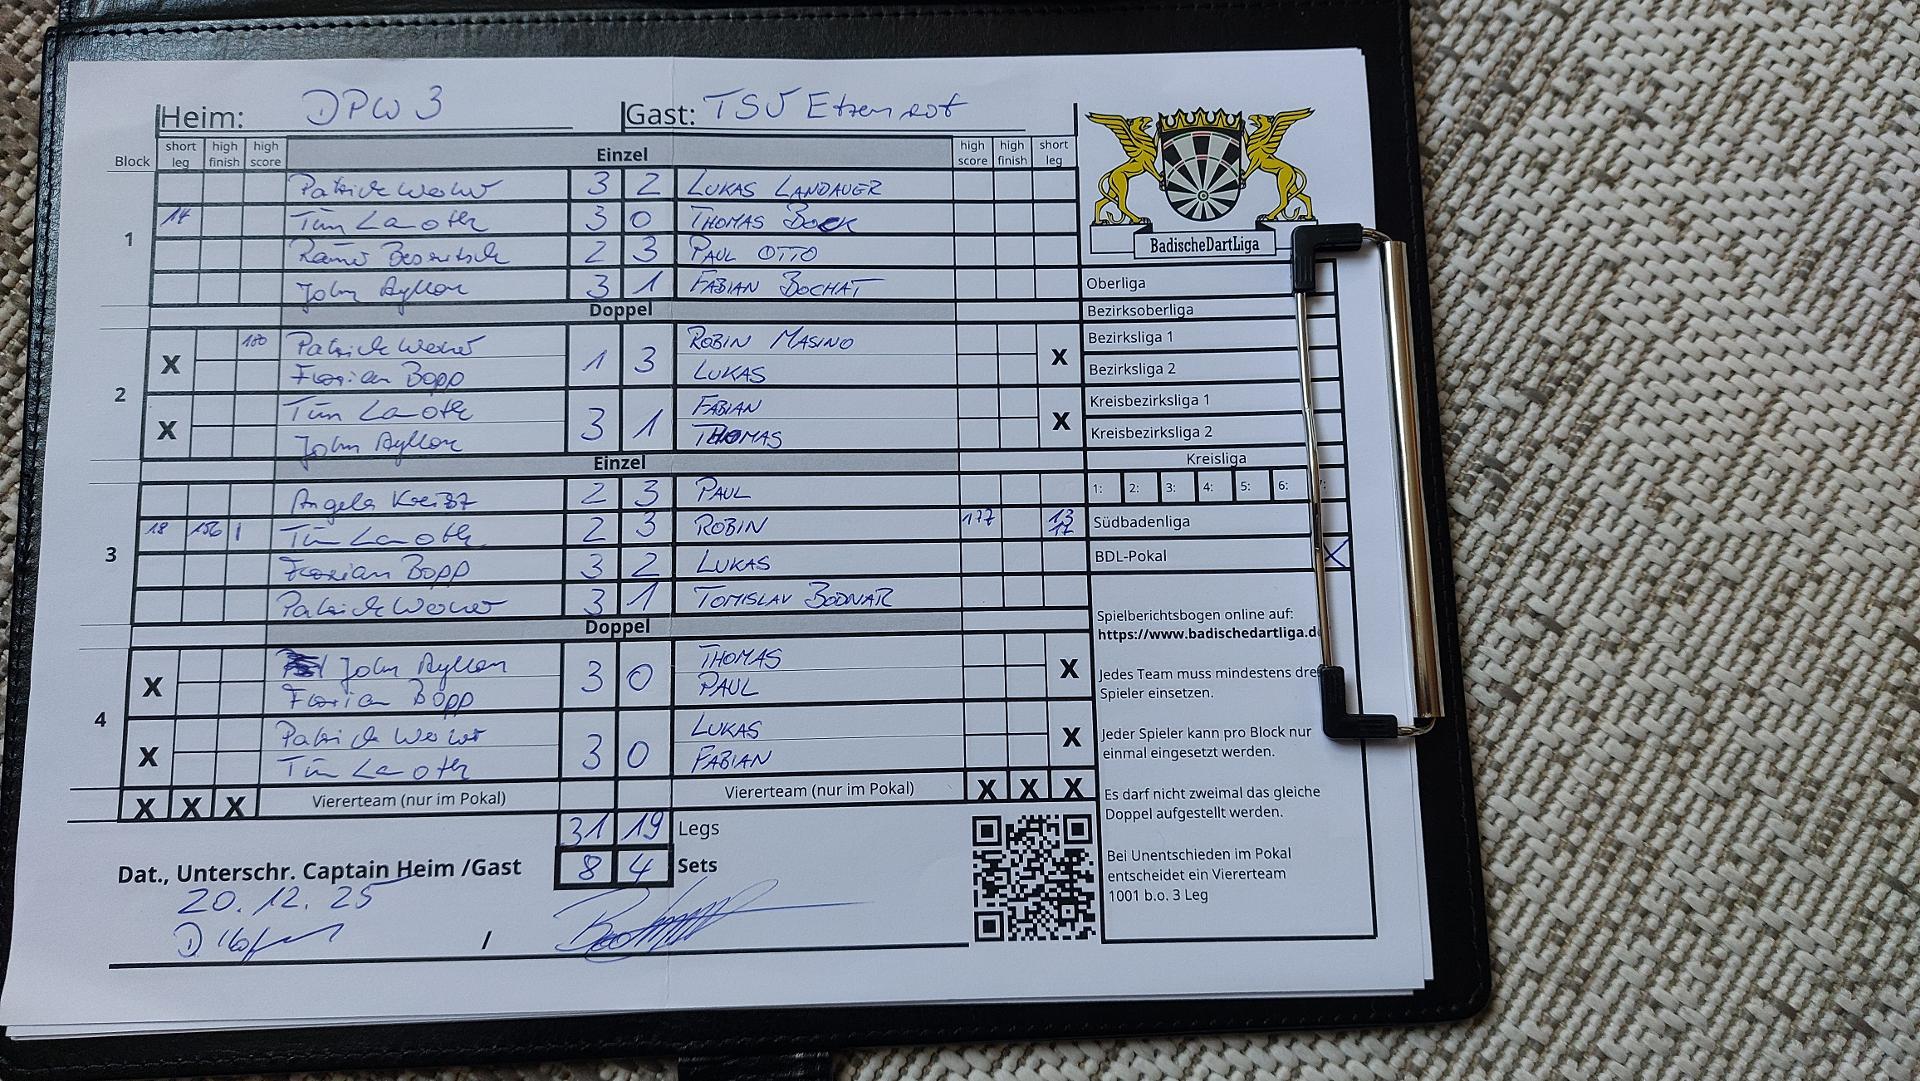 Heim: DPW 3 Gast: TSV Etzenrot
Block short leg high finish high score Einzel high score high finish short leg
1
Patrick 3 2 LUKAS LANDAUER
14 Tim 3 0 THOMAS BOCK
2 3 PAUL OTTO
John 3 1 FABIAN BOCHAT
Doppel
2
X 180 Patrick 1 3 ROBIN MASINO X
Florian Bopp LUKAS
X Tim 3 1 FABIAN X
John THOMAS
Einzel
3
Angela 2 3 PAUL
18 156 Tim 2 3 ROBIN 177 13
17
Florian Bopp 3 2 LUKAS
Patrick 3 1 TOMISLAV BODNAR
Doppel
4
X John 3 0 THOMAS X
Florian Bopp PAUL
X Patrick 3 0 LUKAS X
Tim FABIAN
X X X Viererteam (nur im Pokal) Viererteam (nur im Pokal) X X X
31 19 Legs
8 4 Sets
Dat., Unterschr. Captain Heim /Gast
20.12.25
/
BadischeDartLiga
Oberliga
Bezirksoberliga
Bezirksliga 1
Bezirksliga 2
Kreisbezirksliga 1
Kreisbezirksliga 2
Kreisliga
1: 2: 3: 4: 5: 6:
Südbadenliga
BDL-Pokal X
Spielberichtsbogen online auf:
https://www.badischedartliga.d
Jedes Team muss mindestens dre
Spieler einsetzen.
Jeder Spieler kann pro Block nur
einmal eingesetzt werden.
Es darf nicht zweimal das gleiche
Doppel aufgestellt werden.
Bei Unentschieden im Pokal
entscheidet ein Viererteam
1001 b.o. 3 Leg